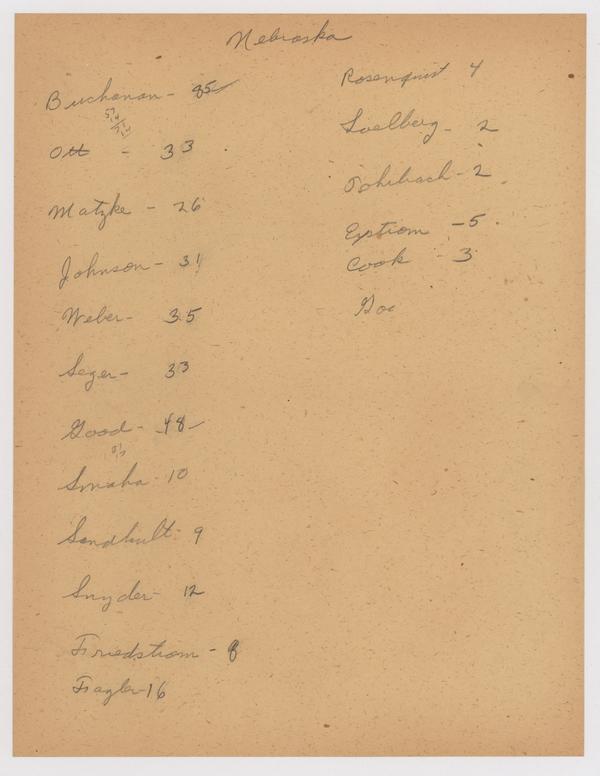 Nebraska
Buchanan - 85
Ott - 33
Matzke - 26
Johnson - 31
Weber - 35
Seger - 33
Good - 48
Smaha - 10
Sandhult - 9
Snyder - 12
Friedstrom - 8
Frazler - 16
Rosenquist 4
Soelberg - 2
Fohrbach - 2
Expstrom - 5
Cook - 3
Goo